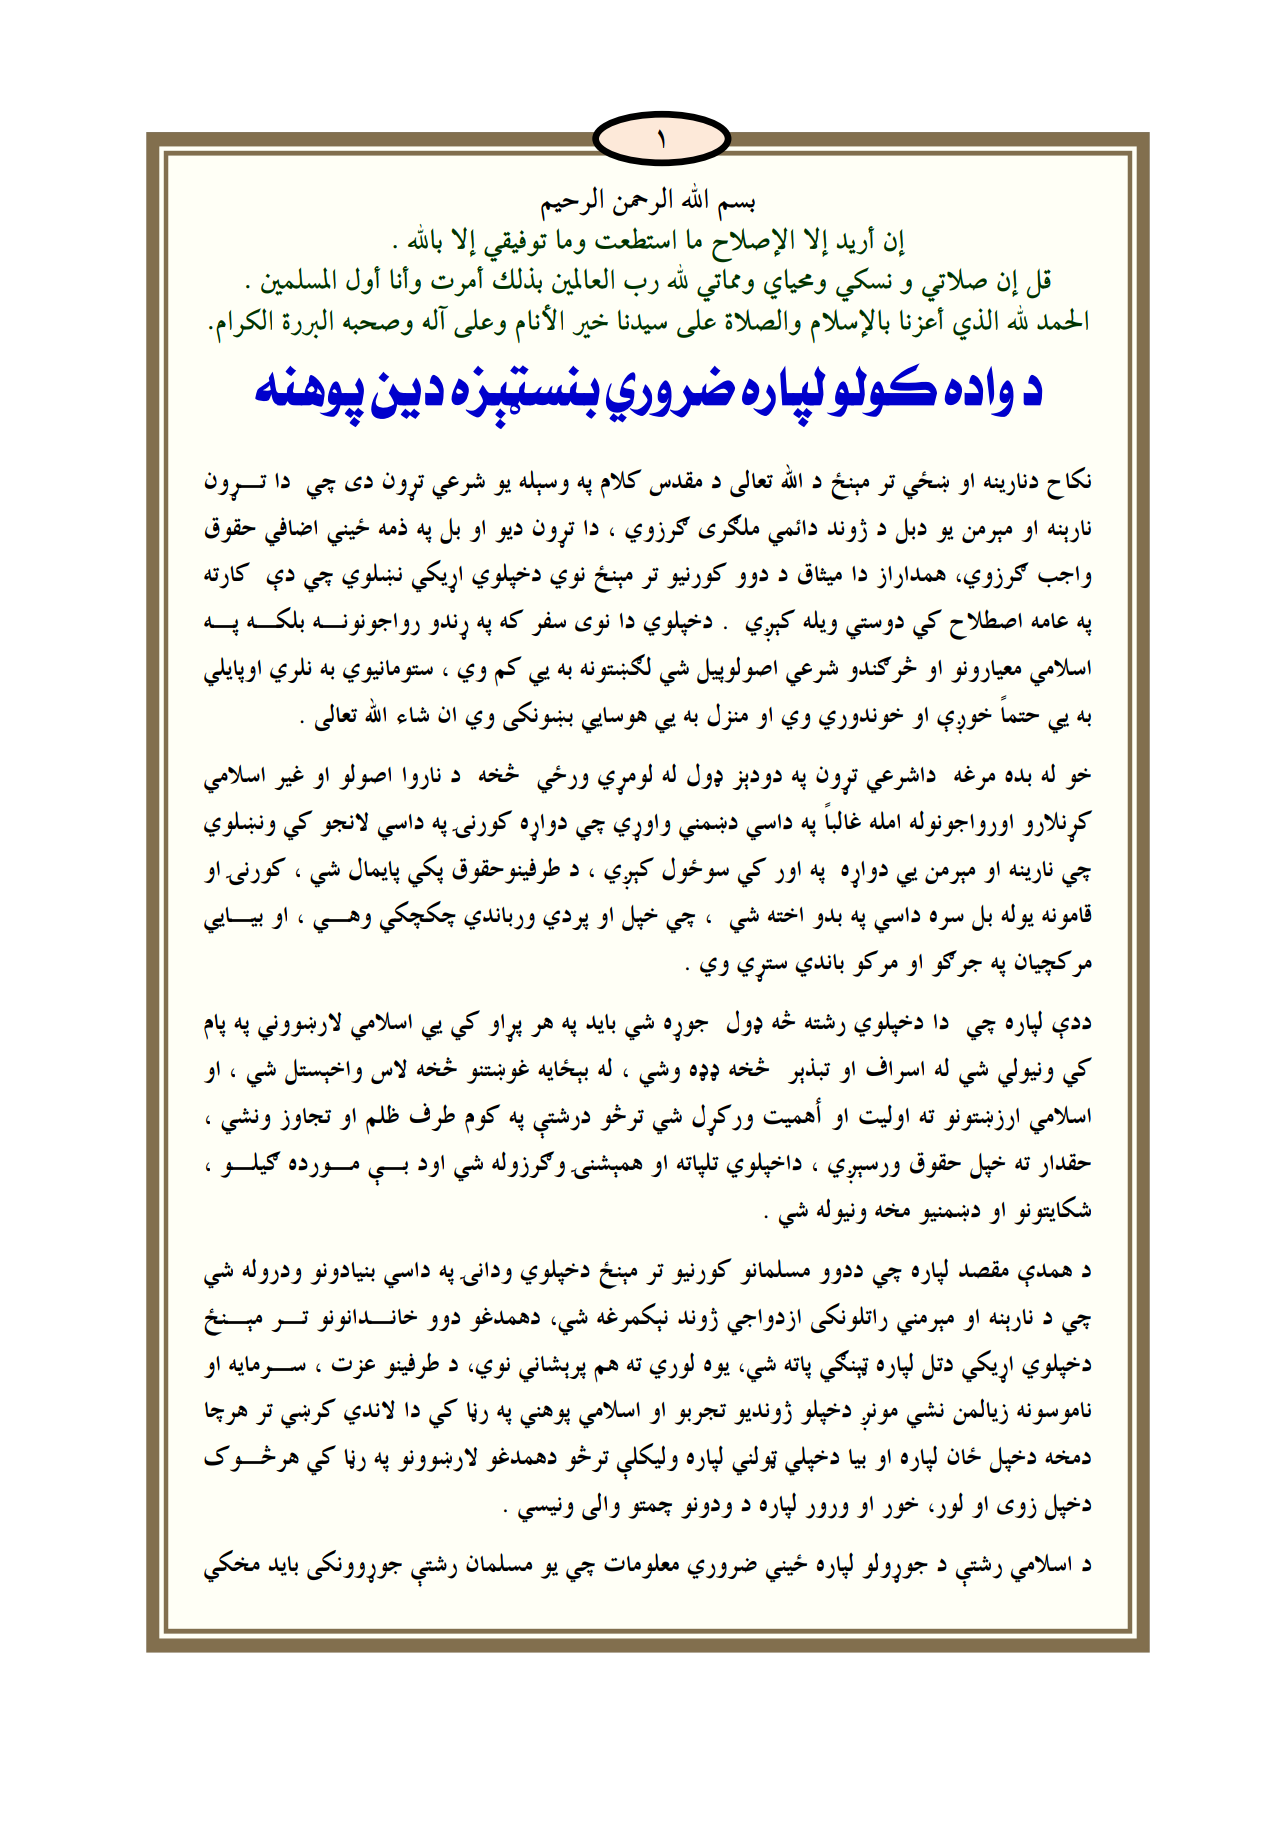 ١
بسم الله الرحمن الرحيم
إن أريد إلا الإصلاح ما استطعت وما توفيقي إلا بالله .
قل إن صلاتي و نسكي ومحياي ومماتي لله رب العالمين بذلك أمرت وأنا أول المسلمين .
الحمد لله الذي أعزنا بالإسلام والصلاة على سيدنا خير الأنام وعلى آله وصحبه البررة الكرام.
د واده کولو لپاره ضروري بنسټېزه دين پوهنه
نکاح دنارينه او ښځي تر مېنځ د الله تعالی د مقدس کلام په وسېله يو شرعي تړون دی چي دا تـــړون
نارېنه او مېرمن يو دبل د ژوند دائمي ملګری ګرزوي ، دا تړون ديو او بل په ذمه ځيني اضافي حقوق
واجب ګرزوي، همداراز دا ميثاق د دوو کورنيو تر مېنځ نوي دخپلوي اړيکي نښلوي چي دې کارته
په عامه اصطلاح کي دوستي ويله کېږي . دخپلوي دا نوی سفر که په ړندو رواجونونـــه بلکـــه پـــه
اسلامي معيارونو او څرګندو شرعي اصولوپيل شي لګښتونه به يي کم وي ، ستومانيوي به نلري اوپايلي
به يي حتماً خوږې او خوندوري وي او منزل به يي هوسايي بښونکی وي ان شاء الله تعالی .
خو له بده مرغه داشرعي تړون په دودېز ډول له لومړي ورځي څخه د ناروا اصولو او غير اسلامي
کړنلارو اورواجونوله امله غالباً په داسي دښمني واوړي چي دواړه کورنۍ په داسي لانجو کي ونښلوي
چي نارينه او مېرمن يي دواړه په اور کي سوځول کېږي ، د طرفينوحقوق پکي پايمال شي ، کورنۍ او
قامونه يوله بل سره داسي په بدو اخته شي ، چي خپل او پردي ورباندي چکچکي وهـــي ، او بيـــايي
مرکچيان په جرګو او مرکو باندي ستړي وي .
ددې لپاره چي دا دخپلوي رشته څه ډول جوړه شي بايد په هر پړاو کي يي اسلامي لارښووني په پام
کي ونيولي شي له اسراف او تبذېر څخه ډډه وشي ، له بېځايه غوښتنو څخه لاس واخېستل شي ، او
اسلامي ارزښتونو ته اوليت او أهميت ورکړل شي ترڅو درشتې په کوم طرف ظلم او تجاوز ونشي ،
حقدار ته خپل حقوق ورسېږي ، داخپلوي تلپاته او همېشنۍ وګرزوله شي اود بـــې مـــورده ګيلـــو ،
شکايتونو او دښمنيو مخه ونيوله شي .
د همدې مقصد لپاره چي ددوو مسلمانو کورنيو تر مېنځ دخپلوي ودانۍ په داسي بنيادونو ودروله شي
چي د نارېنه او مېرمني راتلونکی ازدواجي ژوند نېکمرغه شي، دهمدغو دوو خانـــدانونو تـــر مېـــنځ
دخپلوي اړيکي دتل لپاره ټېنګي پاته شي، يوه لوري ته هم پرېشاني نوي، د طرفينو عزت ، ســـرمايه او
ناموسونه زيالمن نشي مونږ دخپلو ژونديو تجربو او اسلامي پوهني په رڼا کي دا لاندي کرښي تر هرچا
دمخه دخپل ځان لپاره او بيا دخپلي ټولني لپاره وليکلې ترڅو دهمدغو لارښوونو په رڼا کي هرڅـــوک
دخپل زوی او لور، خور او ورور لپاره د ودونو چمتو والی ونيسي .
د اسلامي رشتې د جوړولو لپاره ځيني ضروري معلومات چي يو مسلمان رشتې جوړوونکی بايد مخکي